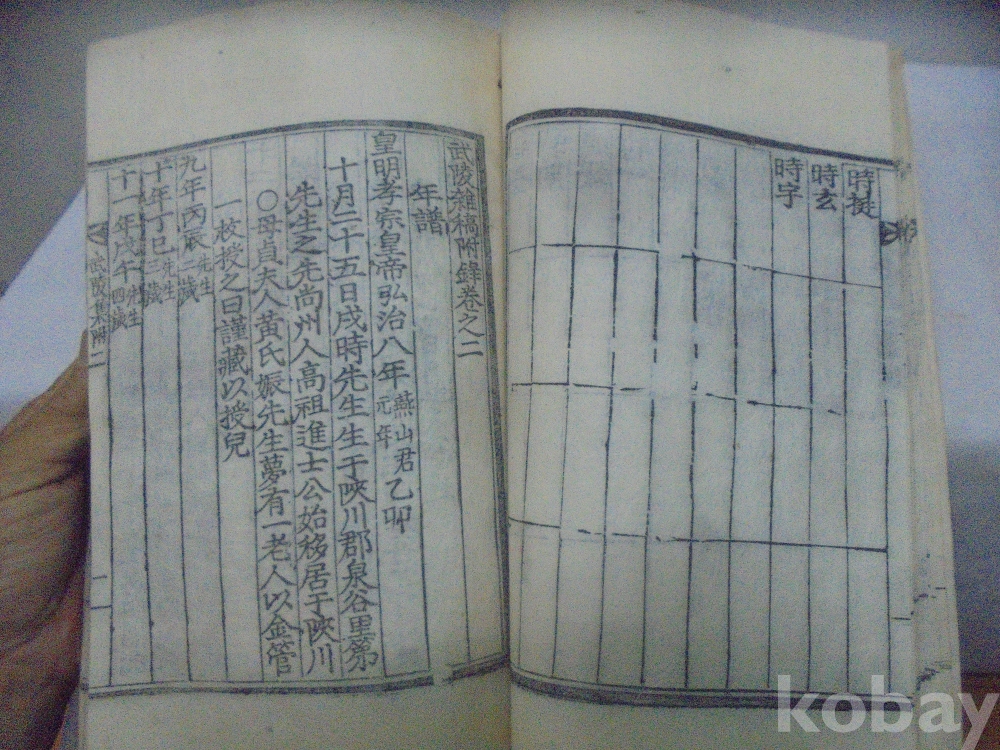 時挺
時玄
時字
武陵雜稿附錄卷之二
年譜
皇明孝宗皇帝弘治八年燕山君元年乙卯
十月二十五日戌時先生生于陜川郡泉谷里第
先生之先尚州人高祖進士公始移居于陜川
○母貞夫人黃氏娠先生夢有一老人以金管
一枚授之曰謹藏以授兒
九年丙辰先生二歲
十年丁巳先生三歲
十一年戊午先生四歲
武陵集附二
kobay